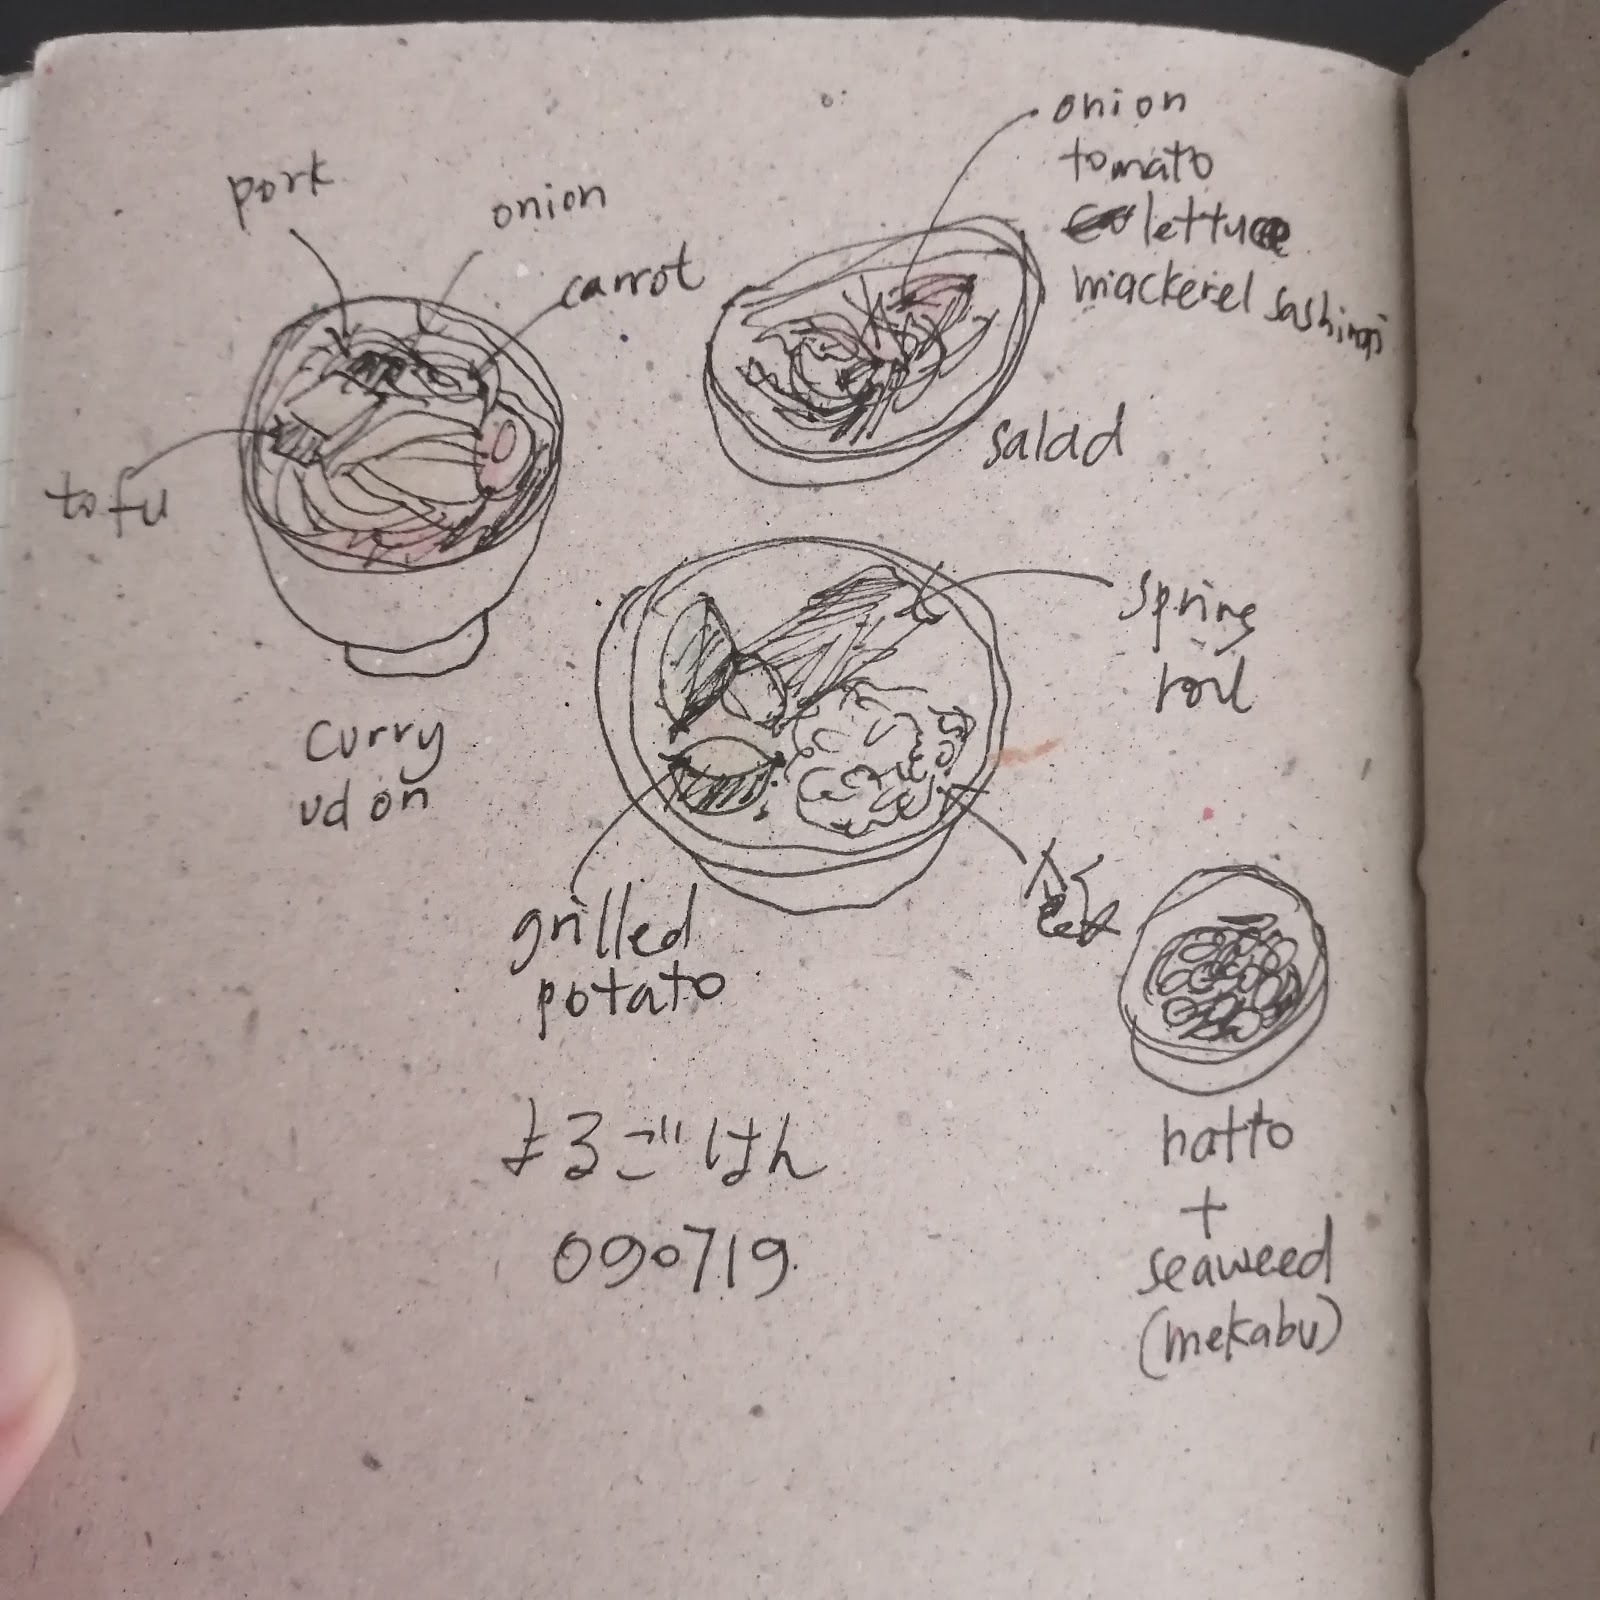 pork
onion
carrot
tofu
curry
udon
onion
tomato
lettuce
mackerel sashimi
salad
spring
roll
grilled
potato
natto
+
seaweed
(mekabu)
よるごはん
090719